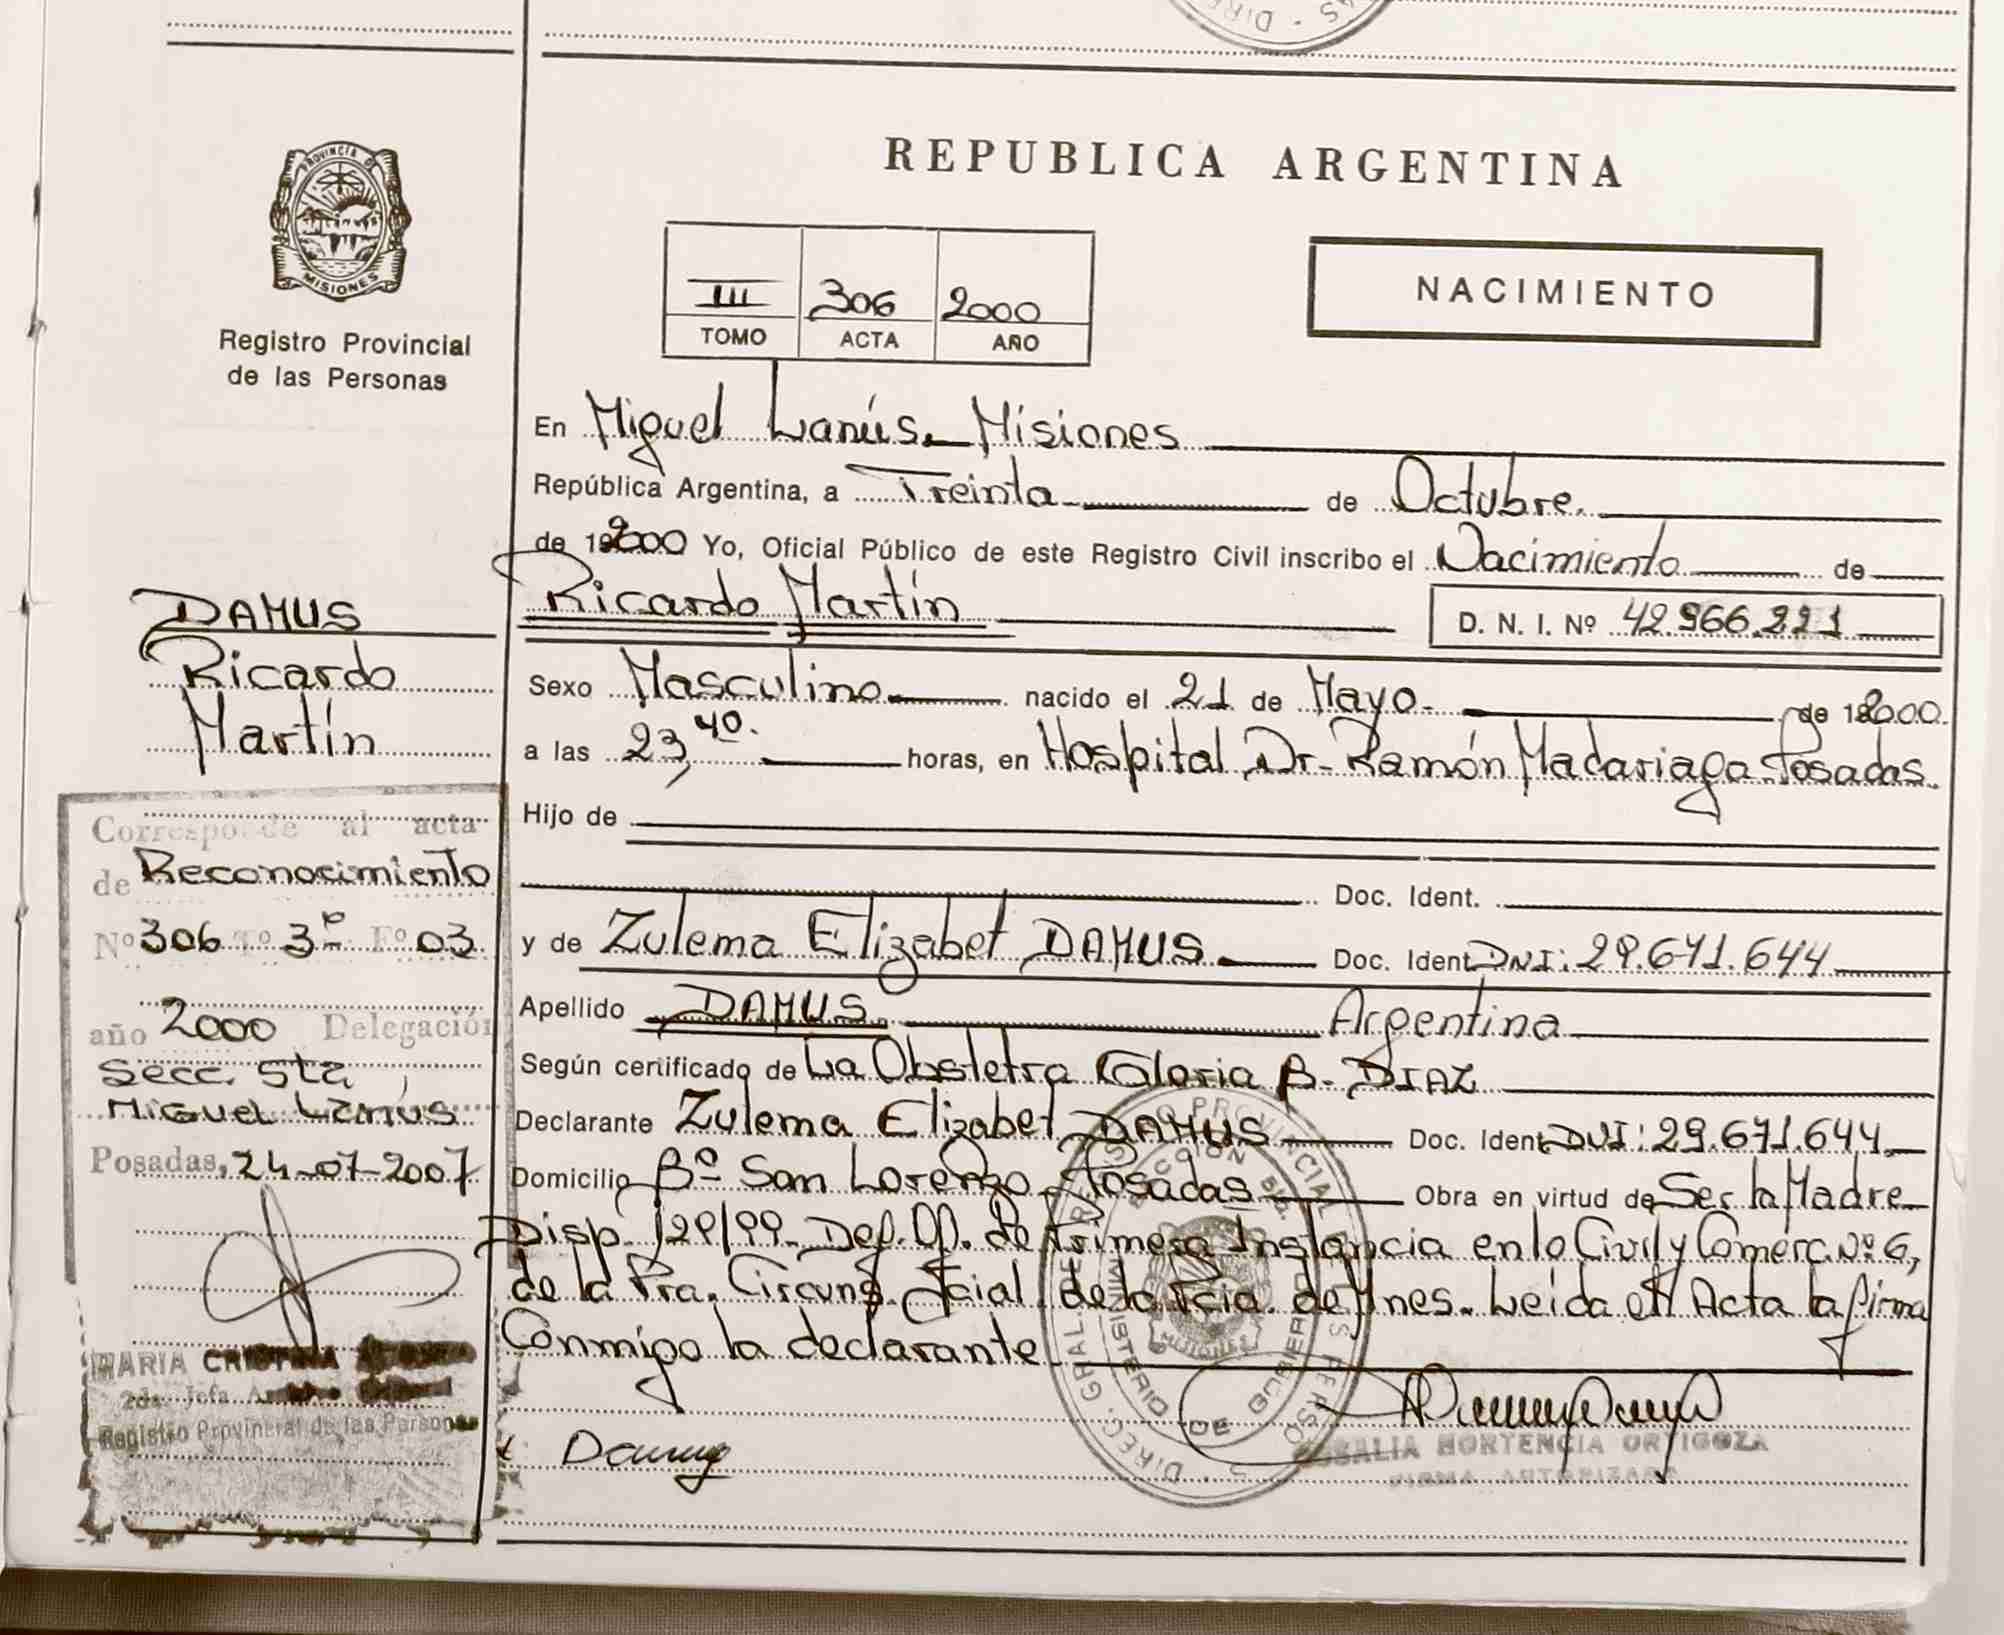 REPUBLICA ARGENTINA
PROVINCIA DE
MISIONES
Registro Provincial
de las Personas
III 306 2000
TOMO ACTA AÑO
NACIMIENTO
En Miguel Lanús. Misiones
República Argentina, a Treinta de Octubre.
de 2000 Yo, Oficial Público de este Registro Civil inscribo el Nacimiento de
Ricardo Martín D. N. I. Nº 42.966.221
Sexo Masculino nacido el 21 de Mayo. de 2000.
a las 23,40. horas, en Hospital Dr. Ramón Madariaga Posadas.
Hijo de
Doc. Ident.
y de Zulema Elizabet DAMUS. Doc. Ident. DNI: 29.671.644
Apellido DAMUS. Argentina
Según certificado de La Obstetra Gloria B. DIAZ
Declarante Zulema Elizabet DAMUS Doc. Ident. DNI: 29.671.644.
Domicilio Bº San Lorenzo. Posadas Obra en virtud de Ser la Madre
Disp. 129/99. Def. Of. de Primera Instancia en lo Civil y Comerc. Nº 6,
de la Pra. Circuns. Jcial. de la Pcia. de Mnes. Leida el Acta la firma
Conmigo la declarante
ROSALIA HORTENCIA ORTIGOZA
FIRMA AUTORIZADA
DAMUS
Ricardo
Martín
Corresponde al acta
de Reconocimiento
Nº 306 Tº 3º Fº 03
año 2000 Delegación
Secc. 5ta,
Miguel Lanus
Posadas, 24-07-2007
MARIA CRISTINA
2da. Jefa
Registro Provincial de las Personas